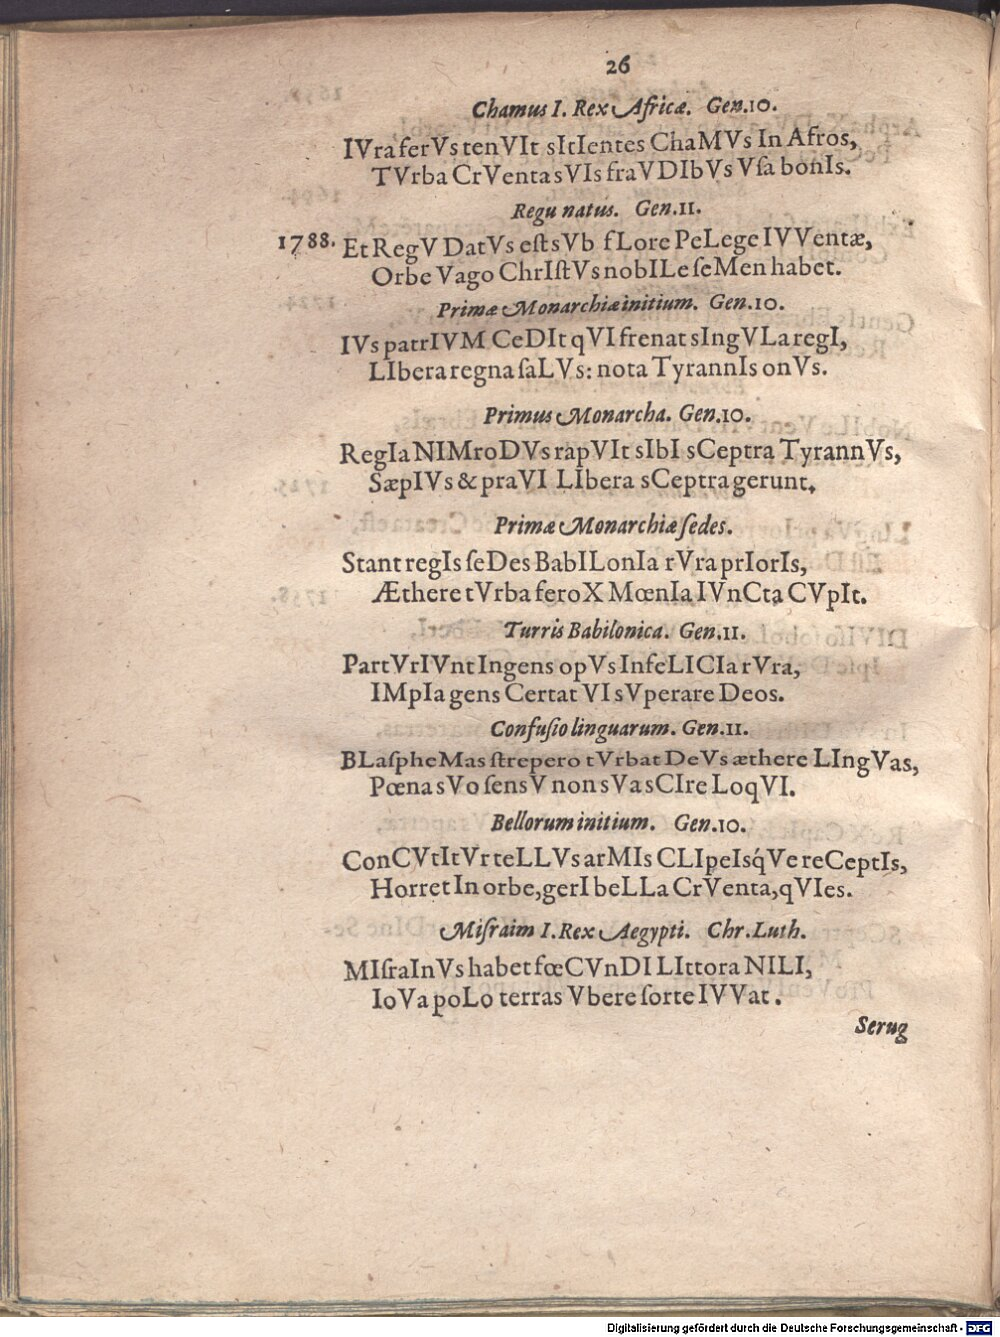 26
Chamus I. Rex Africæ. Gen.10.
IVra ferVs tenVIt sItIentes ChaMVs In Afros,
TVrba CrVenta sVIs fraVDIbVs Vſa bonIs.
Regu natus. Gen.11.
1788. Et RegV DatVs eſt sVb fLore PeLege IVVentæ,
Orbe Vago ChrIſtVs nobILe ſeMen habet.
Primæ Monarchiæ initium. Gen.10.
IVs patrIVM CeDIt qVI frenat sIngVLa regI,
LIbera regna ſaLVs: nota TyrannIs onVs.
Primus Monarcha. Gen.10.
RegIa NIMroDVs rapVIt sIbI sCeptra TyrannVs,
SæpIVs & praVI LIbera sCeptra gerunt.
Primæ Monarchiæ ſedes.
Stant regIs ſeDes BabILonIa rVra prIorIs,
Æthere tVrba feroX MœnIa IVnCta CVpIt.
Turris Babilonica. Gen.11.
PartVrIVnt Ingens opVs InfeLICIa rVra,
IMpIa gens Certat VI sVperare Deos.
Confuſio linguarum. Gen.11.
BLaſpheMas ſtrepero tVrbat DeVs æthere LIngVas,
Pœnas Vo ſensV non sVa sCIre LoqVI.
Bellorum initium. Gen.10.
ConCVtItVr teLLVs arMIs CLIpeIsq́Ve reCeptIs,
Horret In orbe, gerI beLLa CrVenta, qVIes.
Miſraim I. Rex Aegypti. Chr.Luth.
MIſraInVs habet fœCVnDI LIttora NILI,
IoVa poLo terras Vbere ſorte IVVat.
Serug
Digitalisierung gefördert durch die Deutsche Forschungsgemeinschaft - DFG